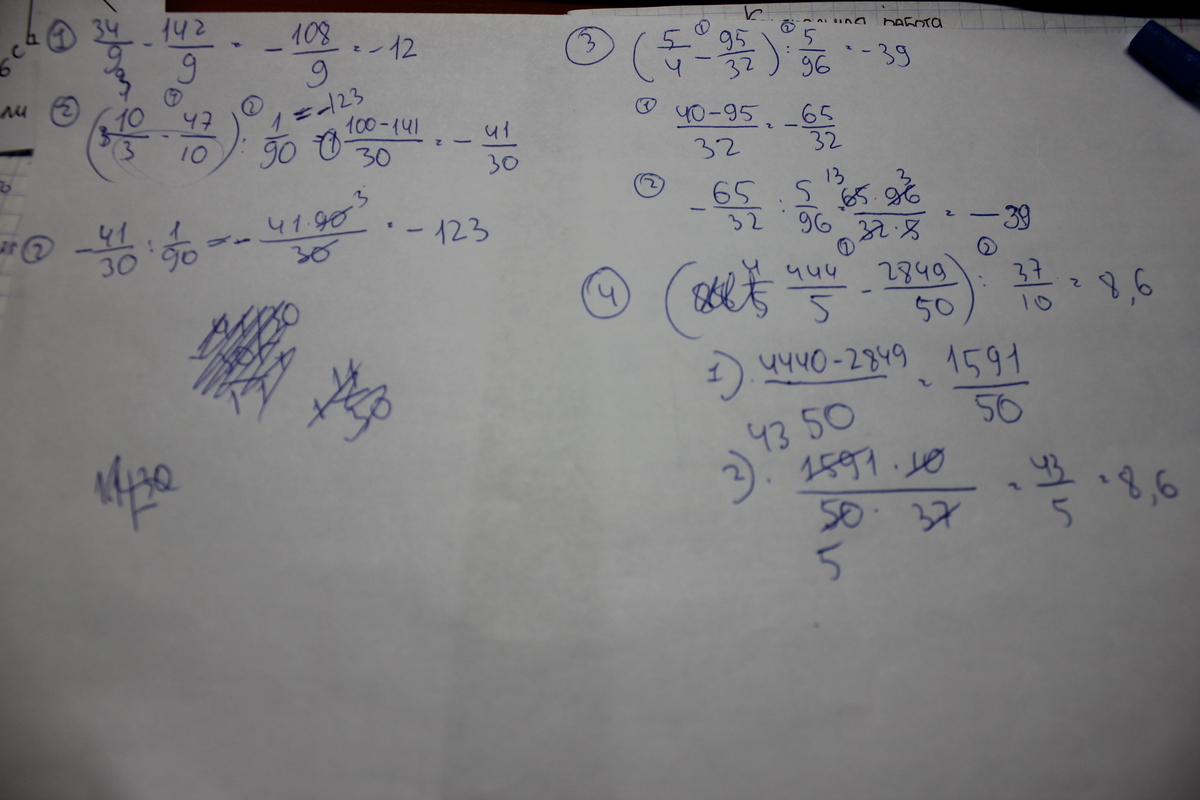 ① 34/9 - 142/9 = - 108/9 = -12
② (10/3 - 47/10) : 1/90 = -123
① 100-141/30 = - 41/30
② - 41/30 : 1/90 = - 41·90/30 = -123
Контрольная работа
③ (5/4 - 95/32) : 5/96 = -39
① 40-95/32 = - 65/32
② - 65/32 : 5/96 = 65·96/32·5 = -39
④ (444/5 - 2849/50) : 37/10 = 8,6
1). 4440-2849/50 = 1591/50
2). 1591·10/50·37 = 43/5 = 8,6